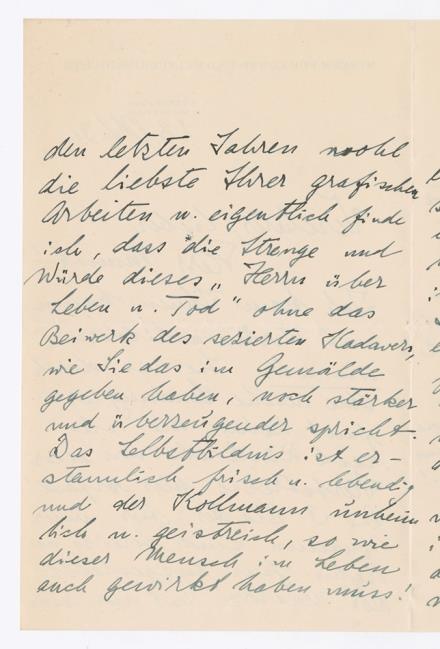 den letzten Jahren wohl
die liebste Ihrer grafischen
Arbeiten u. eigentlich finde
ich, dass die Strenge und
Würde dieses „Herrn über
Leben u. Tod" ohne das
Beiwerk des sezierten Kadavers,
wie Sie das im Gemälde
gegeben haben, noch stärker
und überzeugender spricht.
Das Selbstbildnis ist er-
staunlich frisch u. lebendig
und der Kollmann unheim
lich u. geistreich, so wie
dieser Mensch im Leben
auch gewirkt haben muss!